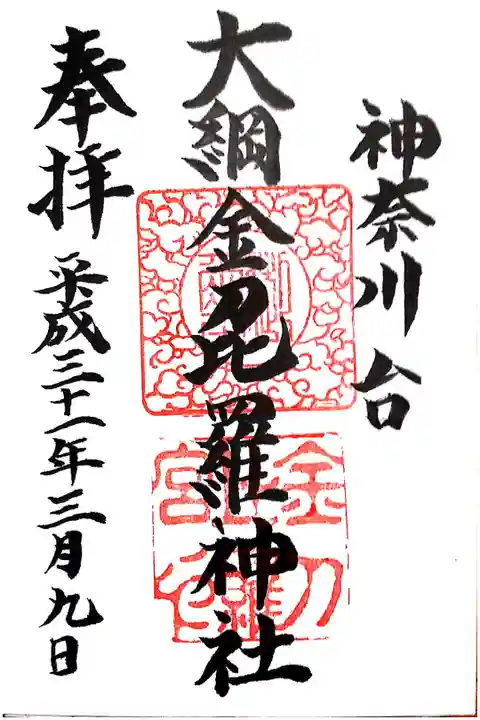 神奈川台
大綱金刀比羅神社
奉拝
平成三十一年三月九日